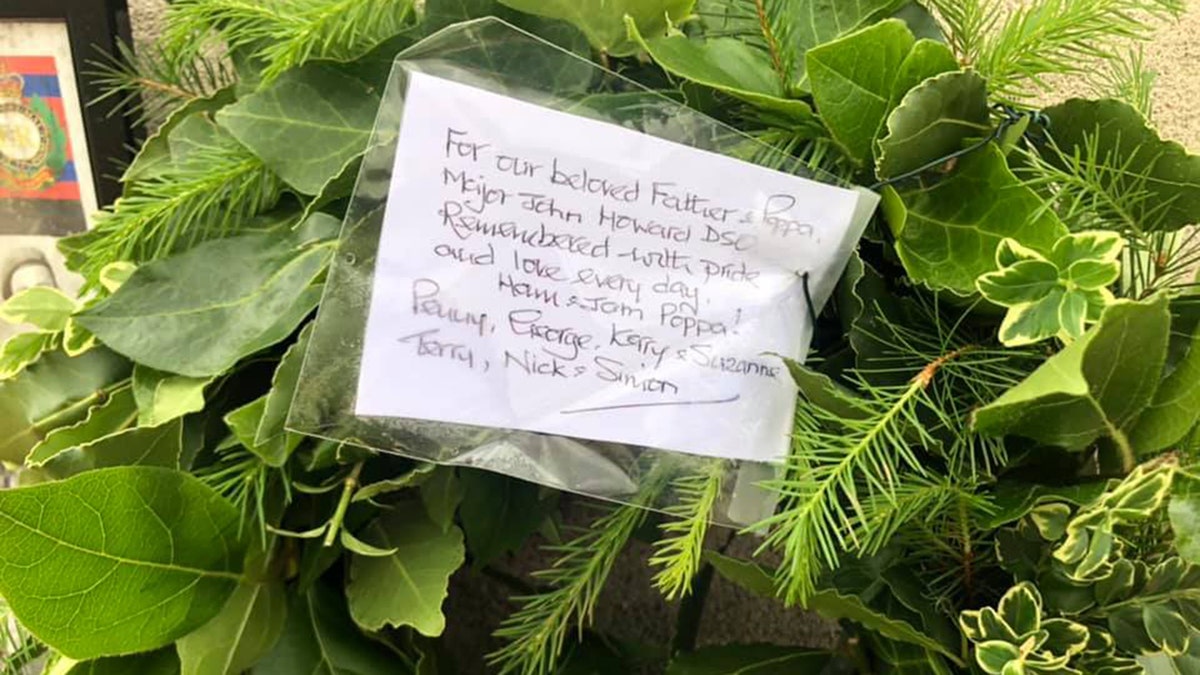 For our beloved Father & Poppa,
Major John Howard DSO
Remembered with pride
and love every day.
Ham & Jam Poppa!
Penny, George, Kerry & Suzanne
Terry, Nick & Simon